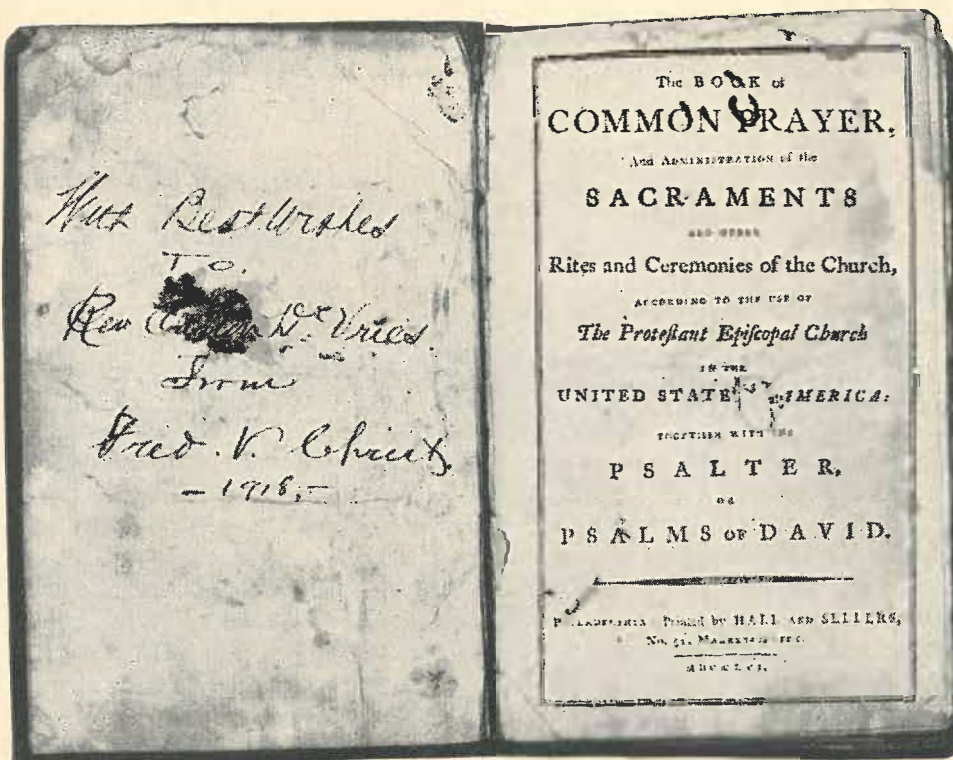 With Best Wishes
To.
Rev De Vries.
From
Fred. V. Christ.
- 1918, -
The BOOK of
COMMON PRAYER,
And ADMINISTRATION of the
SACRAMENTS
AND OTHER
Rites and Ceremonies of the Church,
ACCORDING TO THE USE OF
The Proteſtant Epiſcopal Church
IN THE
UNITED STATE AMERICA:
TOGETHER WITH THE
PSALTER,
OR
PSALMS OF DAVID.
PHILADELPHIA Printed by HALL AND SELLERS,
No. 51, MARKET